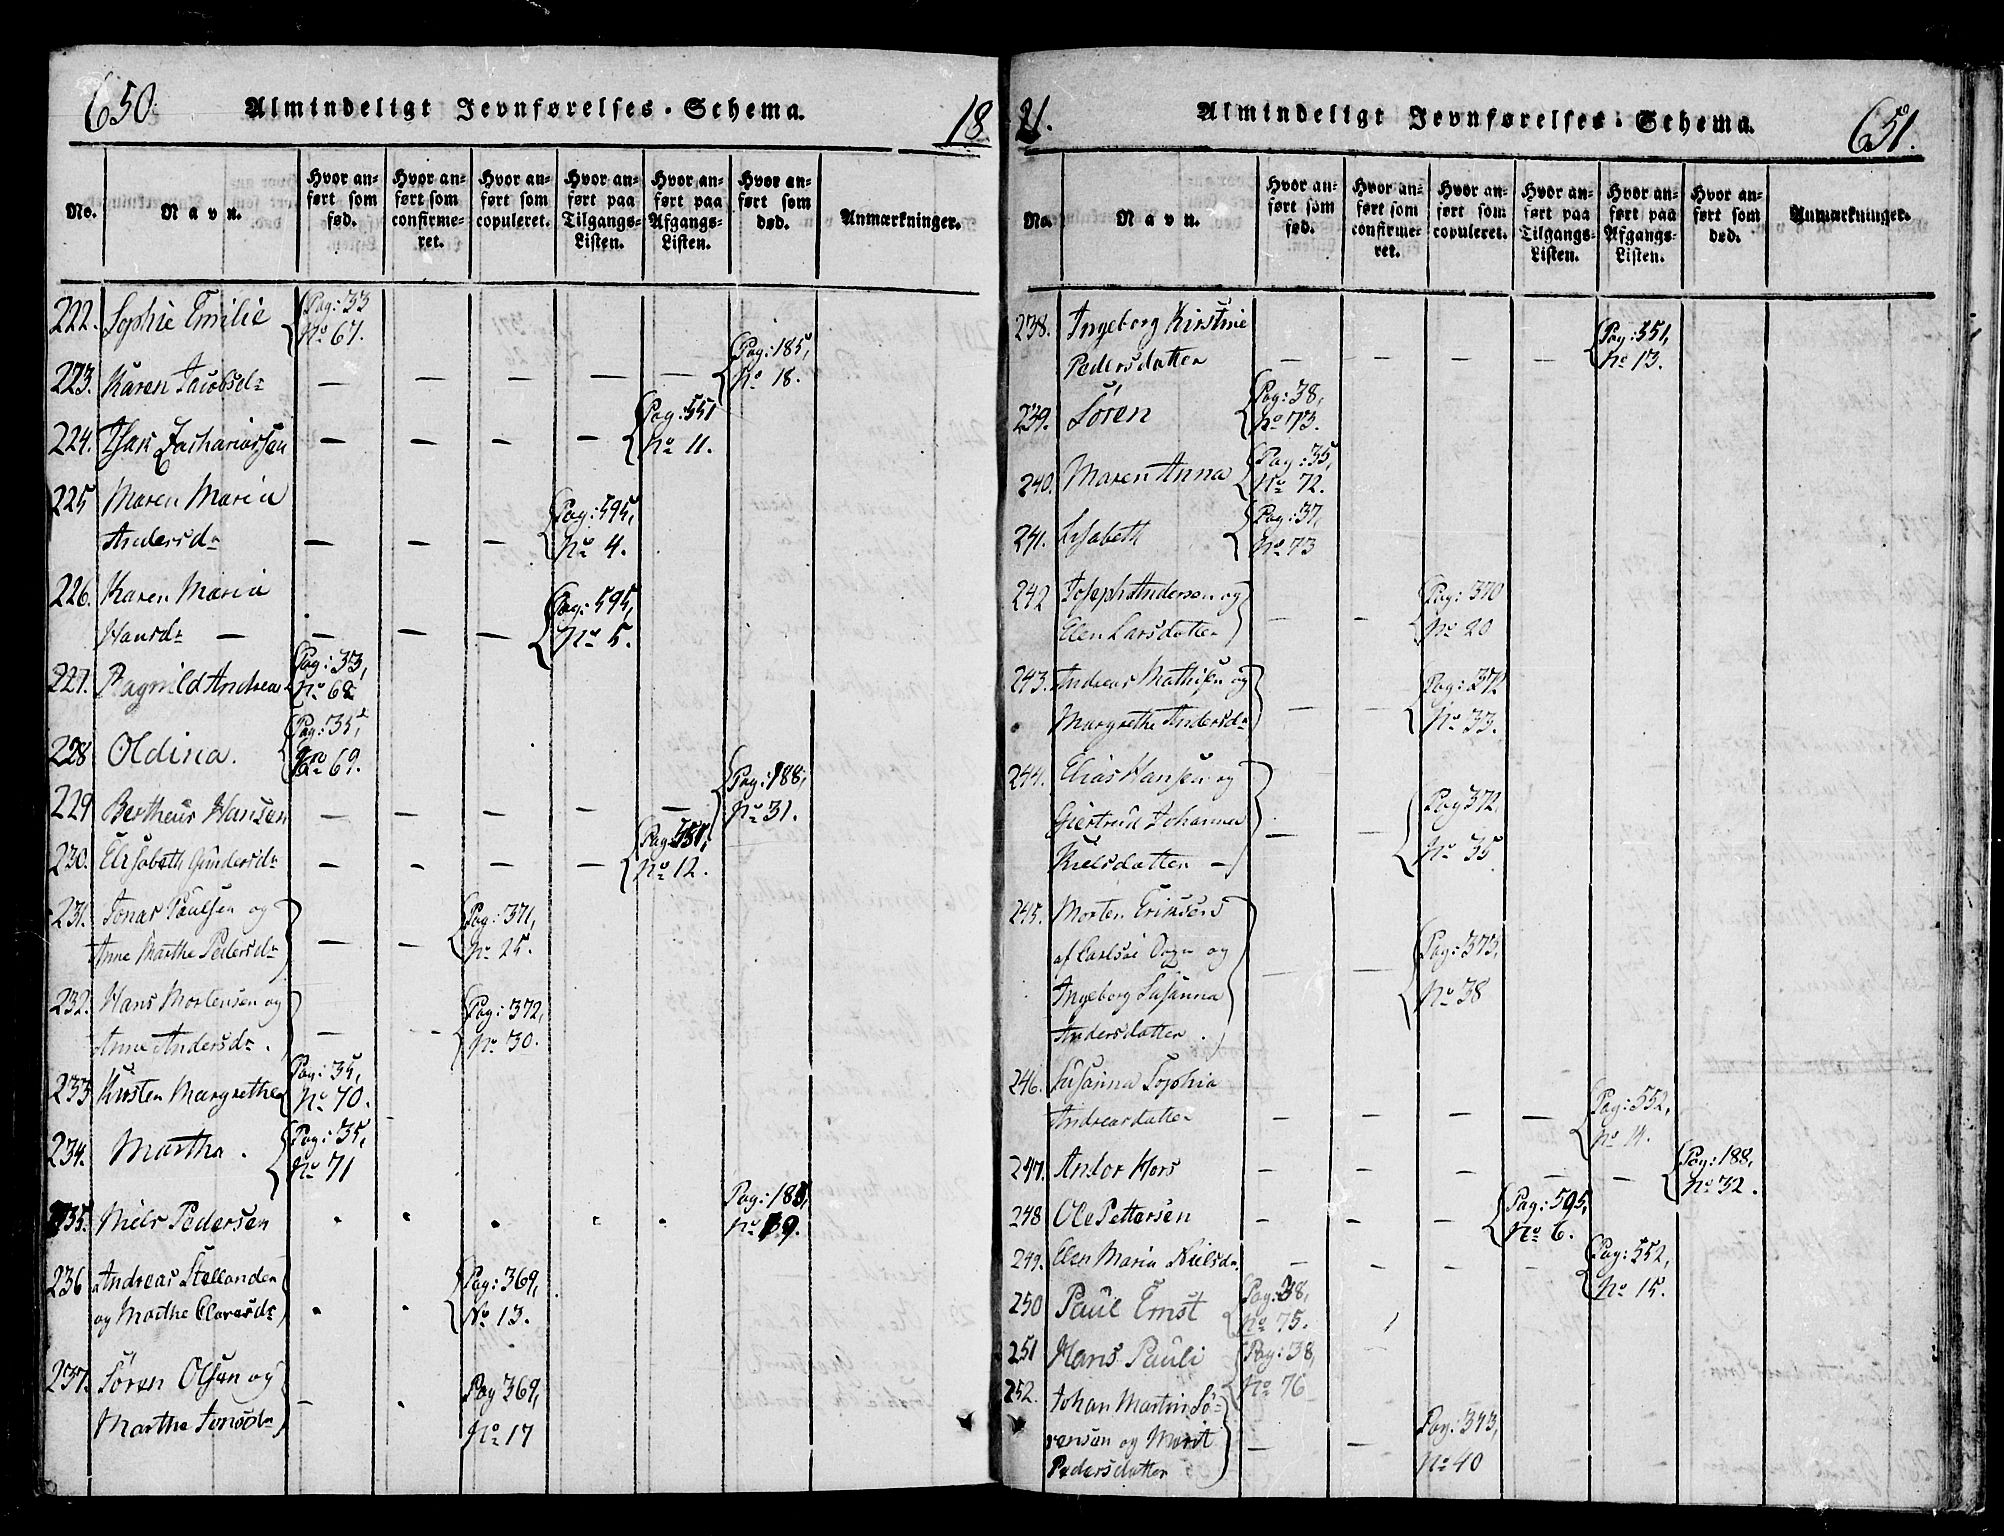 650.
Almindeligt Jevnførelses-Schema.
18
No.
Navn.
Hvor anført som fød.
Hvor anført som confirmeret.
Hvor anført som copuleret.
Hvor anført paa Tilgangs-Listen.
Hvor anført paa Afgangs-Listen.
Hvor anført som død.
Anmærkninger.
222. Sophie Emilie Pag: 33
No 67.
Pag: 185,
223. Karen Jacobsdr — — — — — No 18.
Pag: 551
224. Isak Zachariassen — — — — No 11.
225 Maren Maria Pag: 595,
Andersdr — — — No 4.
226. Karen Maria Pag: 595,
Hansdr — — — — No 5.
Pag: 33,
227. Ragnild Andrea No 68
Pag: 35,
228 Oldina. No 69.
Pag: 188,
229 Bertheus Hansen — — — — — No 31.
Pag: 551,
230. Elisabeth Gundersd: — — — — No 12.
231. Jonas Paulsen og Pag: 371,
Anne Marthe Pedersdr — — No 25.
232. Hans Mortensen og Pag: 372,
Anne Andersdr. — — No 30.
Pag: 35,
233 Kirsten Margrethe No 70.
Pag: 35,
234. Martha. No 71
Pag: 185,
235. Niels Pedersen No 19.
236 Andreas Pag: 369,
og Marthe No 13.
237. Søren Olsen og Pag 369,
Marthe — No 17
21.
Almindeligt Jevnførelses-Schema.
651.
No.
Navn.
Hvor anført som fød.
Hvor anført som confirmeret.
Hvor anført som copuleret.
Hvor anført paa Tilgangs-Listen.
Hvor anført paa Afgangs-Listen.
Hvor anført som død.
Anmærkninger.
238. Ingeborg Kirstine Pag: 551,
Pedersdatter — — — — No 13.
Pag: 38,
239. Sören No 73.
Pag: 35,
240. Maren Anna No 72.
Pag: 37,
241. Lisabeth No 73
242 Joseph Andersen og Pag: 370
Elen Larsdatter — — No 20
243. Andreas Mathisen og Pag: 372
Margrethe Andersdr — — No 33.
244. Elias Hansen og Pag 372
Giertrud Johanna — —
Nielsdatter — No 35
245. Morten Eriksen
af Carlsöe Sogn og Pag: 373,
Ingeborg Susanna — — No 38
Andersdatter.
246. Susanna Sophia Pag: 552,
Andreasdatter — — — — No 14.
Pag: 188,
247. Andor Hors — — — — — No 32.
Pag: 595,
248 Ole Pettersen — — — No 6.
Pag: 552,
249. Elen Maria Nielsdr — — — — No 15.
Pag: 38,
250 Paul Ernst No 75.
251 Hans Pauli Pag: 38,
No 76
252. Johan Martin Sö-
rensen og Marit Pag: 373,
Pedersdatter — — No 40